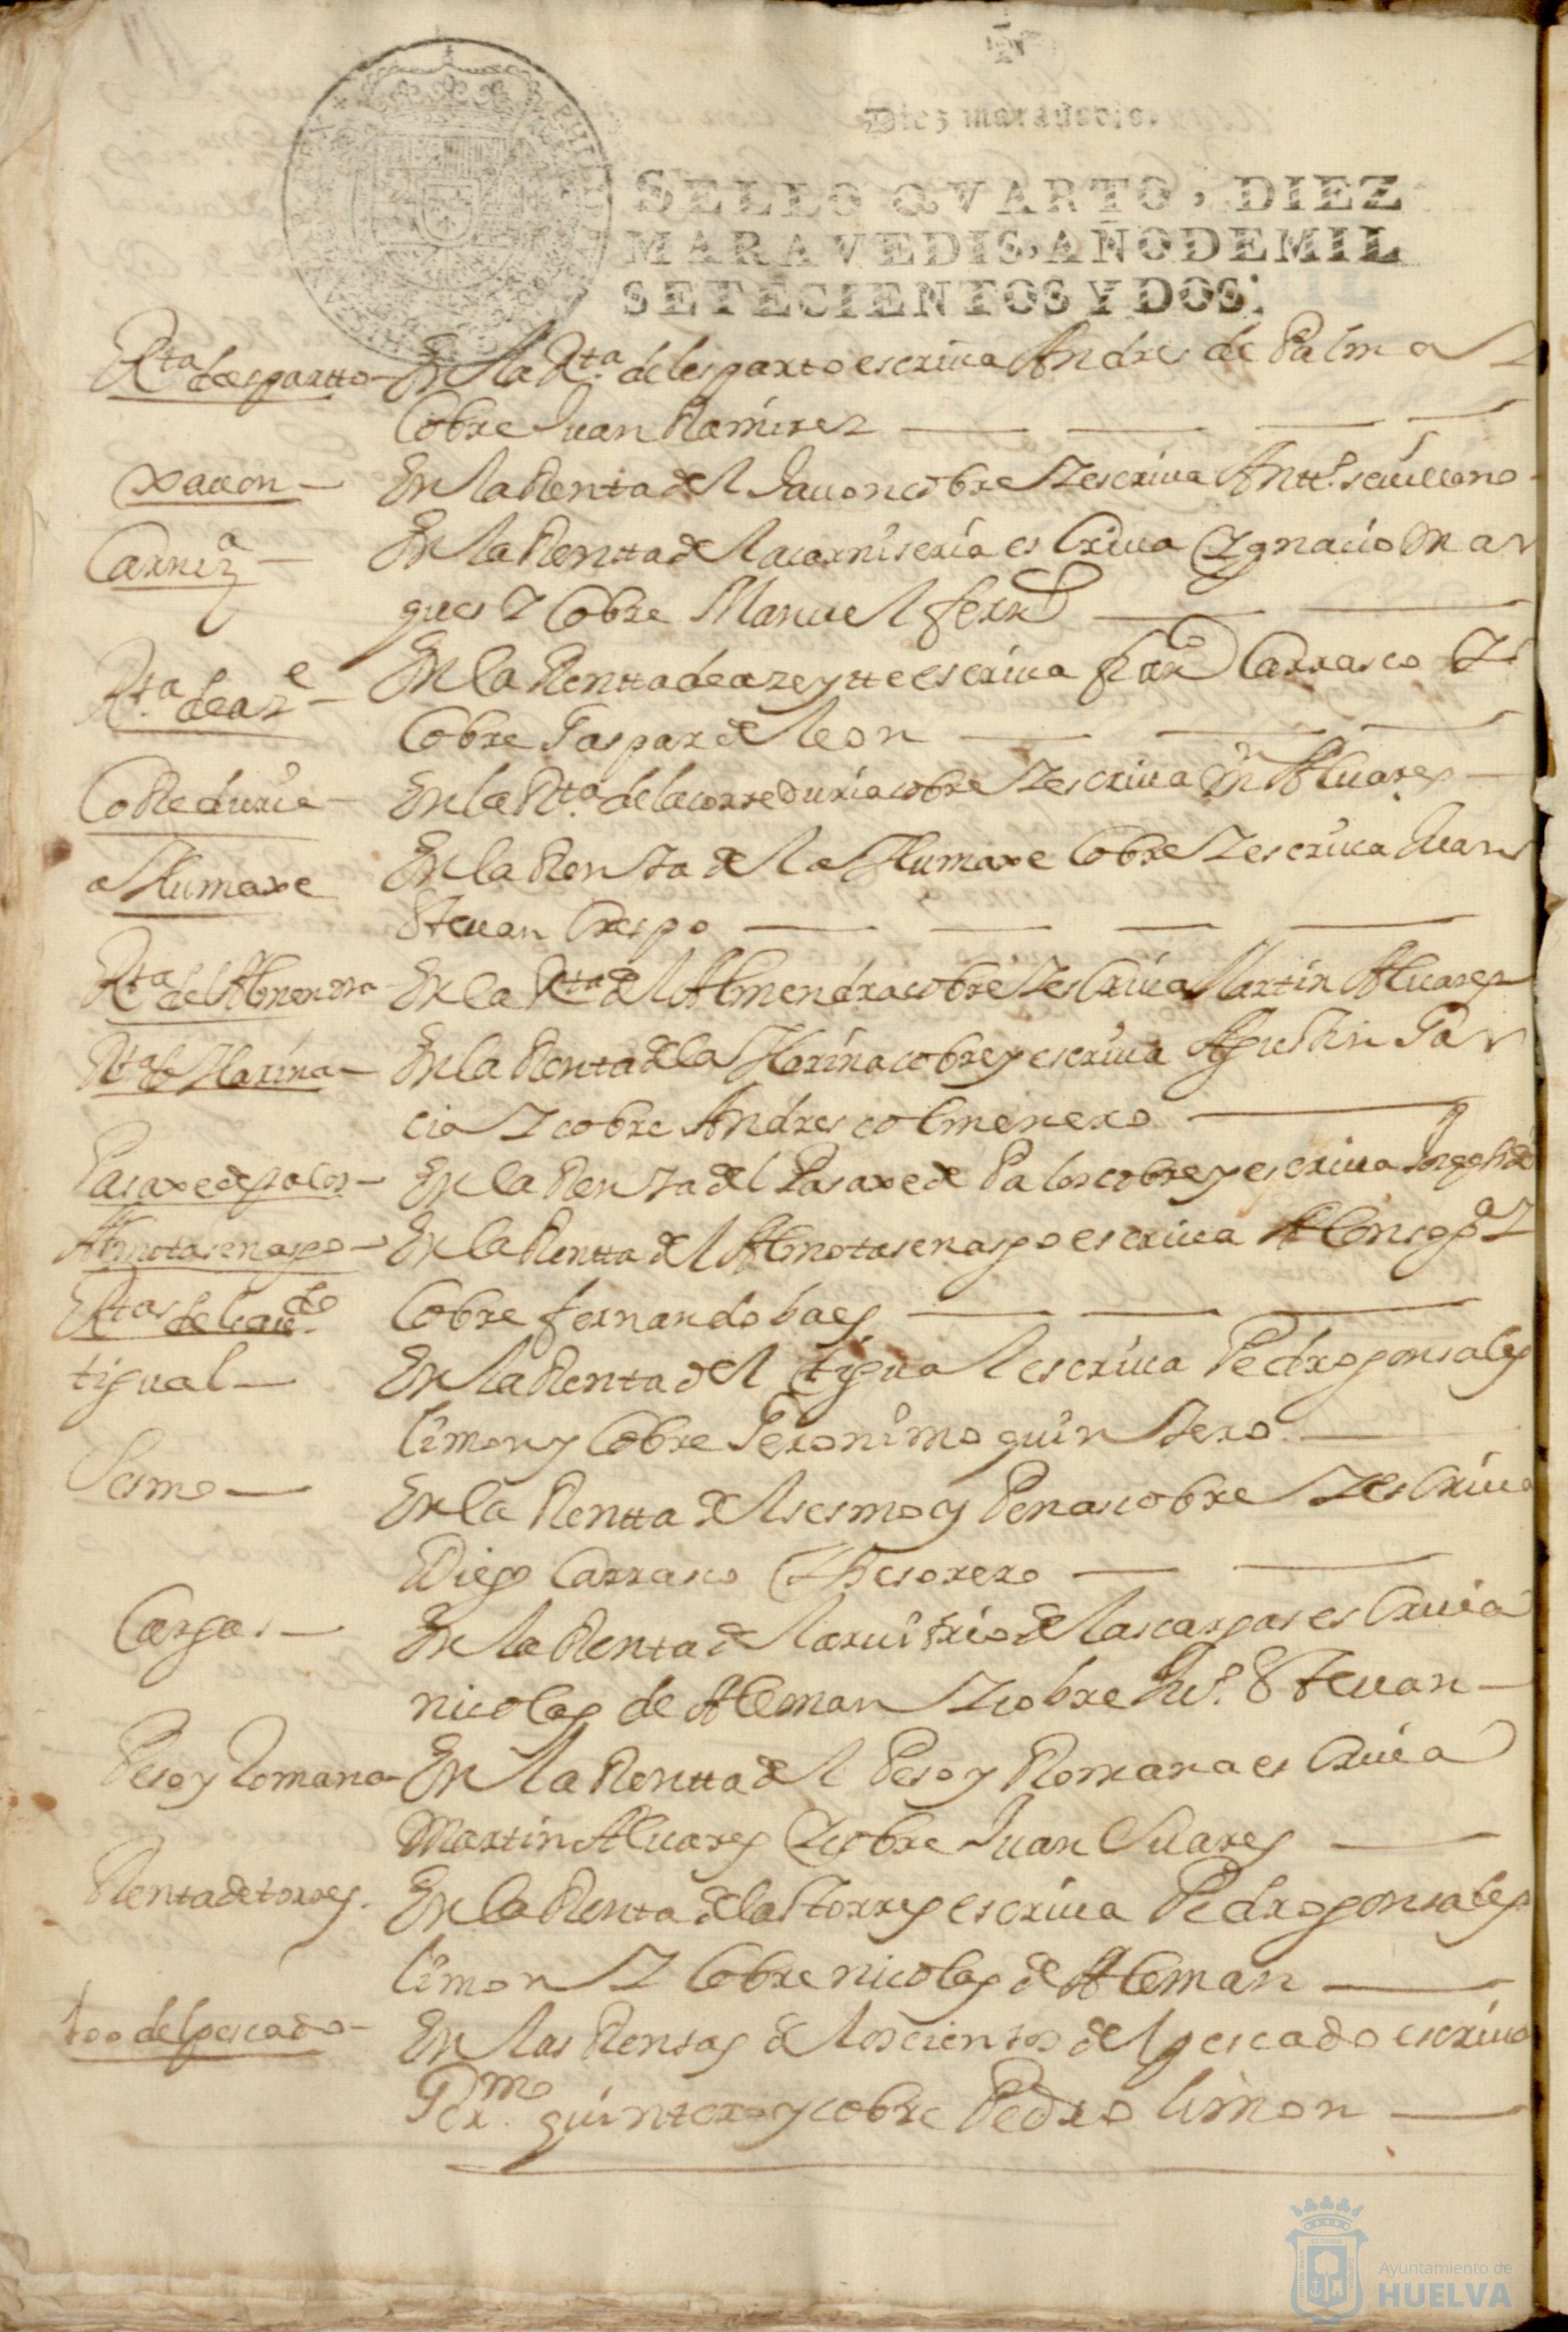 Diez maravedis.
SELLO QVARTO, DIEZ
MARAVEDIS, AÑO DE MIL
SETECIENTOS Y DOS.
Rta de espartto - En la Rta. del esparto escriua Andres de Palma Y
Cobre Juan Ramires
xauon - En la Renta del Jauon cobre Y escriua Antto. seuillano
Carniza - En la Rentta de la carniseria es Criua Ygnacio Mar
ques Y Cobre Manuel ferrd
Rta. de aze - En la Rentta de azeytte escriua Carrasco Y
Cobre Gaspar de leon
CoReduria - En la Rta. de la correduria cobre Y escriua Mn Aluares
alumaxe En la Renta del alumaxe Cobre Y escriua Juan
Steuan Crespo
Rta. del Almendra - En la Rta del Almendra cobre Y es Criua Martin Aluares
Rta de Harina - En la Renta de la Harina cobre y escriua Agustin Gar
cia Y cobre Andres colmenero
Pasaxe de palos - En la Renta del Pasaxe de Palos cobre y escriua
Almotasenasgo - En la Rentta del Almotasenasgo escriua Alonso Y
Rtas de
Cobre fernando baes
tigual - En la Renta del tigual escriua Pedro gonsales
limon y Cobre Geronimo quintero
Sesmo - En la Rentta del sesmo y Penas cobre Y es Criua
Diego Carrasco Thesorero
Cargas - En la Renta del aruitrio de las cargas es Criua
nicolas de Aleman Y cobre Juo. Steuan
Peso y Romana - En la Rentta del Peso y Romana es Criua
Martin Aluares Y cobre Juan Suares
Renta de torres. En la Renta de las torres escriua Pedro gonsales
limon Y Cobre nicolas de Aleman
del pescado - En las Rentas de los cientos del pescado escriua
Germo. quintero y cobre Pedro limon
Ayuntamiento de
HUELVA